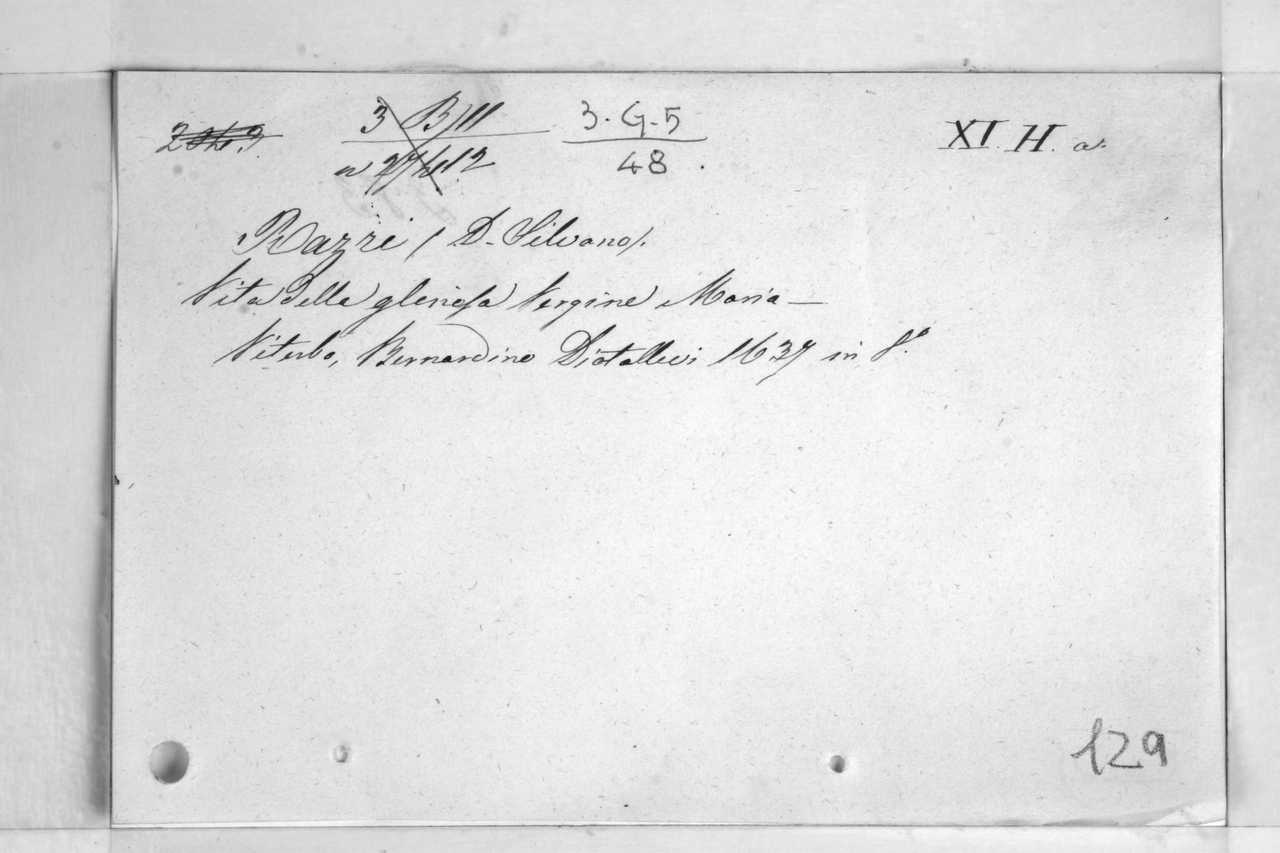 3 B 11 3. G. 5 XI. H. a.
48.
Razzi (D. Silvano).
Vita della gloriosa Vergine Maria —
Viterbo, Bernardino Diotallevi 1637 in 8°.
129